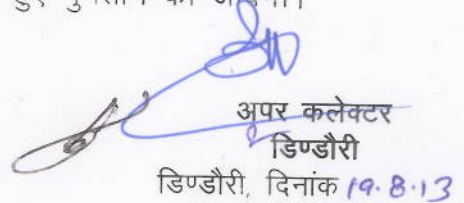 अपर कलेक्टर
डिण्डौरी
डिण्डौरी, दिनांक 19.8.13